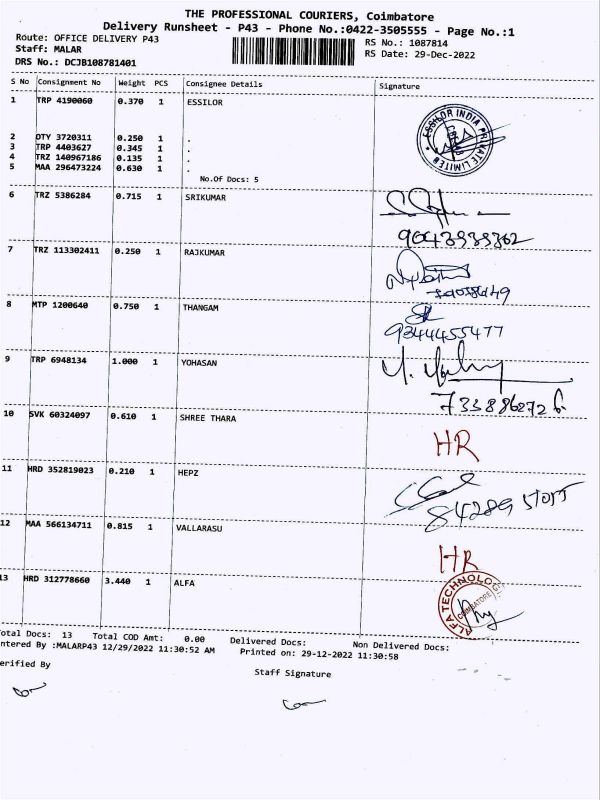 THE PROFESSIONAL COURIERS, Coimbatore
Delivery Runsheet - P43 - Phone No.:0422-3505555 - Page No.:1
Route: OFFICE DELIVERY P43
Staff: MALAR
DRS No.: DCJB108781401
RS No.: 1087814
RS Date: 29-Dec-2022
S No Consignment No Weight PCS Consignee Details Signature
1 TRP 4190060 0.370 1 ESSILOR
ESSILOR INDIA PRIVATE LIMITED
2 OTY 3720311 0.250 1 .
3 TRP 4403627 0.345 1 .
4 TRZ 140967186 0.135 1 .
5 MAA 296473224 0.630 1 .
No.Of Docs: 5
6 TRZ 5386284 0.715 1 SRIKUMAR
7 TRZ 113302411 0.250 1 RAJKUMAR
8 MTP 1200640 0.750 1 THANGAM
9344455477
9 TRP 6948134 1.000 1 YOHASAN
7338862726
10 SVK 60324097 0.610 1 SHREE THARA
HR
11 HRD 352819023 0.210 1 HEPZ
12 MAA 566134711 0.815 1 VALLARASU
HR
13 HRD 312778660 3.440 1 ALFA
ALFA TECHNOLOG
COIMBATORE
otal Docs: 13 Total COD Amt: 0.00 Delivered Docs: Non Delivered Docs:
ntered By :MALARP43 12/29/2022 11:30:52 AM Printed on: 29-12-2022 11:30:58
erified By
Staff Signature